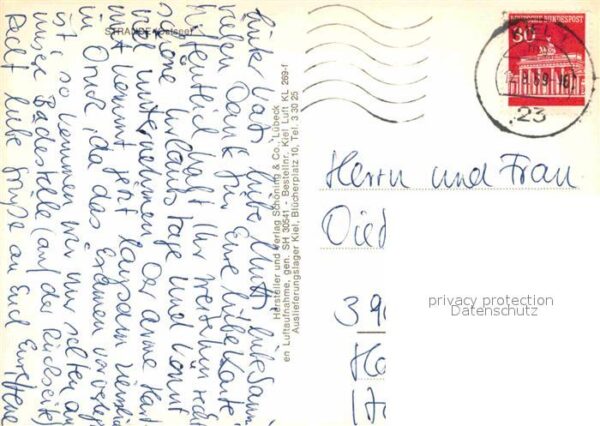 STRANDE/Ostsee
Lieber Vati, liebe Mutti, liebe Sanni
vielen Dank für Eure liebe Karte!
Hoffentlich habt Ihr weiterhin recht
schöne Urlaubstage und könnt
viel unternehmen. Der arme Hart-
mut kommt jetzt langsam ziemlich
in Druck, da das Examen vorverlegt
ist, so kommen wir nur selten an
unsere Badestelle (auf der Rückseite)
Recht liebe Grüße an Euch Eure
Hersteller und Verlag Schöning & Co., Lübeck
en Luftaufnahme, gen. SH 30541 - Bestellnr. Kiel Luft KL 269-f
Auslieferungslager Kiel, Blücherplatz 10, Tel: 3 30 25
DEUTSCHE BUNDESPOST
30
.9.69-16
23
Herrn und Frau
Died
39
privacy protection
Datenschutz
Ha